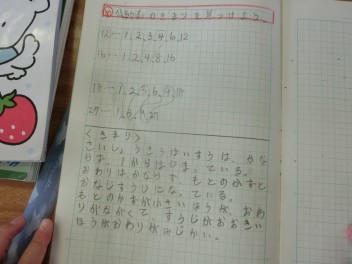 約数のきまりを見つけよう。
12…1,2,3,4,6,12
16…1,2,4,8,16
18…1,2,3,6,9,18
27…1,3,9,27
<きまり>
さいしょうこうばいすうは、かな
らず、1からはじまっている。
おわりはかならず、もとのかずと
おなじすうじになっている。
もとのかずが小さいほうが、おわ
りがながくて、すうじがおおきい
ほうがおわりがみじかい。